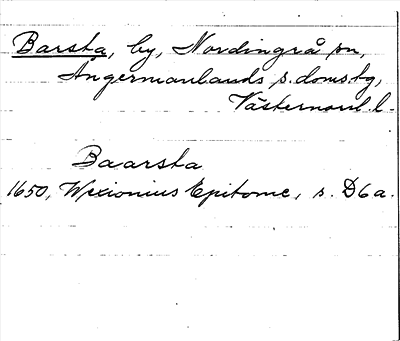 Barsta, by, Nordingrå sn,
Ångermanlands s. doms.tg,
Västernorrl. l.
Baarsta
1650, Wexionius Epitome, s. D6a.